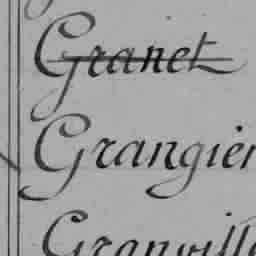 Granet
Grangier
Granville